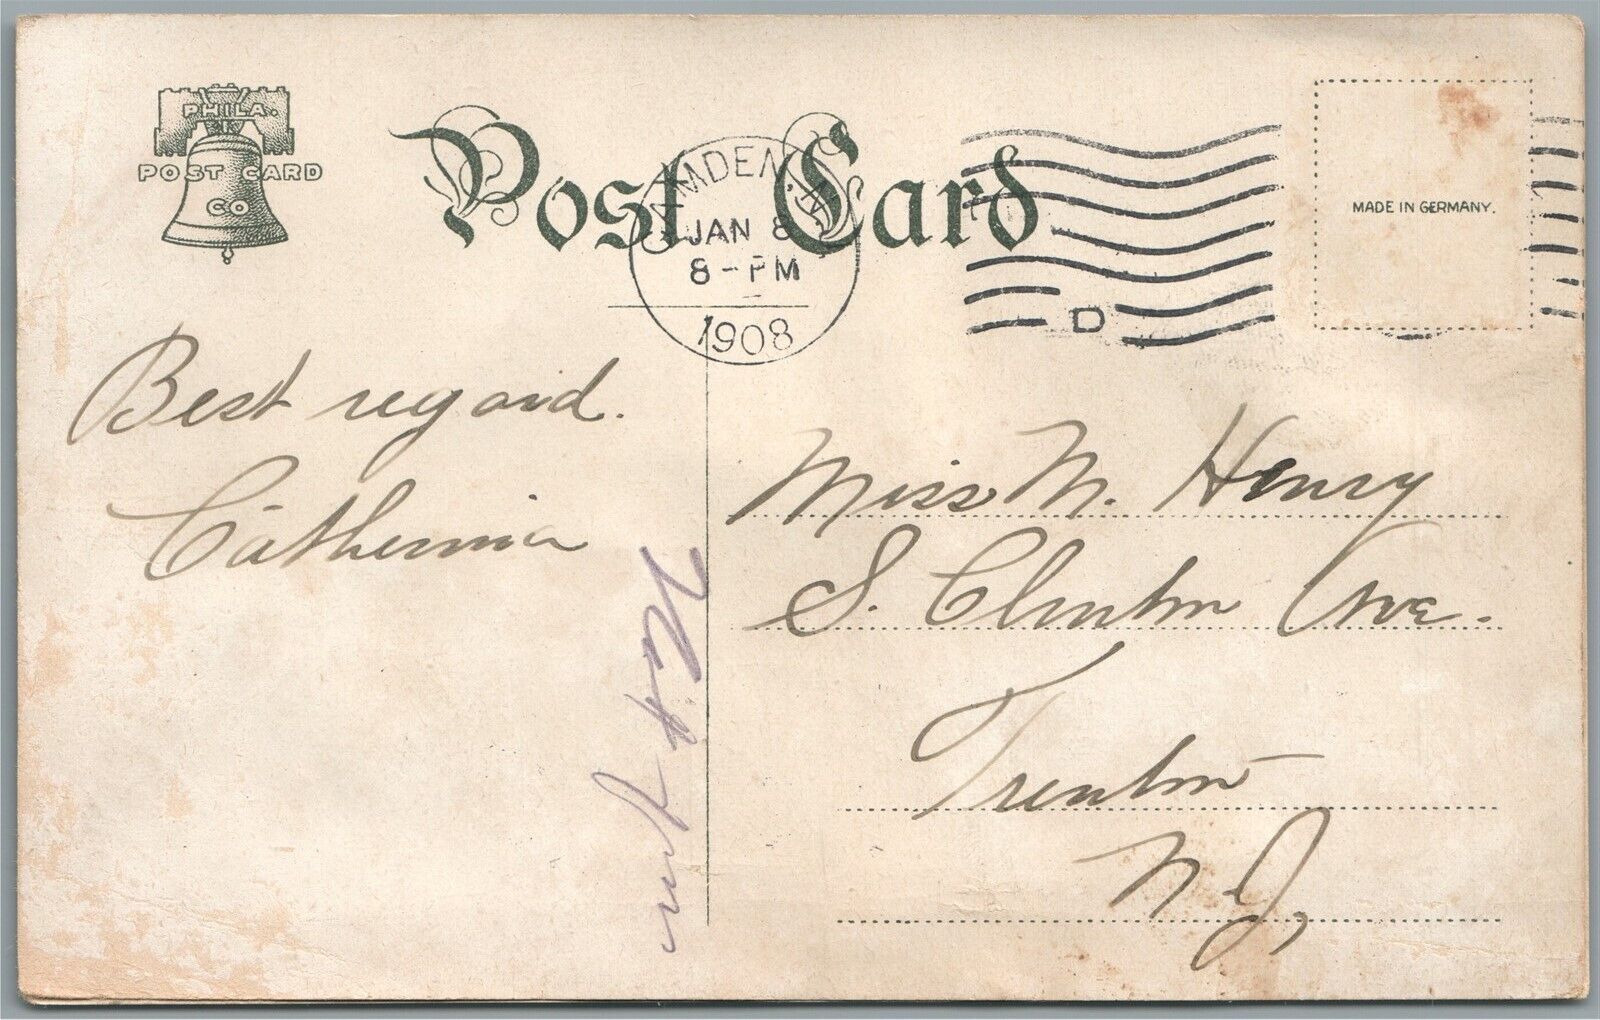 PHILA.
POST CARD
CO
Post Card
CAMDEN, N.J.
JAN 8
8-PM
1908
D
MADE IN GERMANY.
Best regard.
Catherina
Miss M. Henry
S. Clinton Ave.
Trenton
N.J,